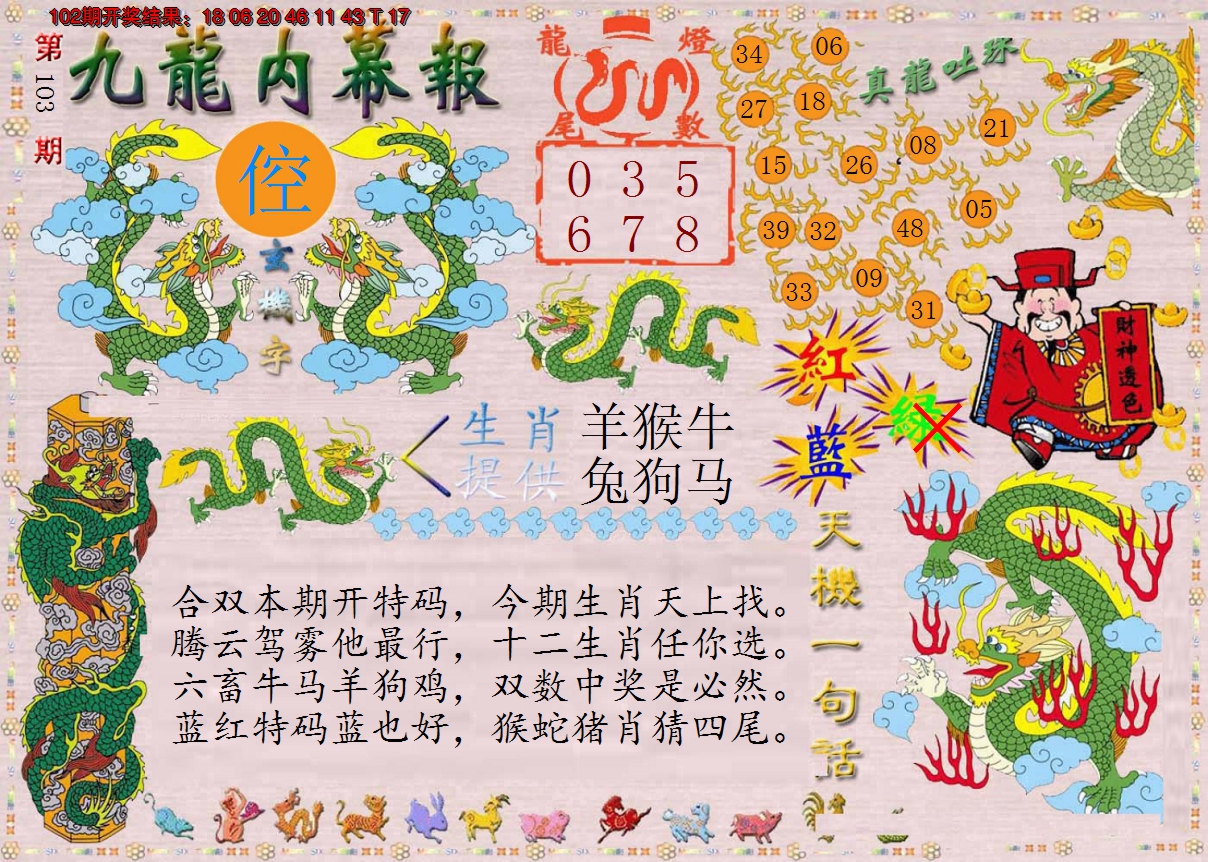 102期开奖结果：18 06 20 46 11 43 T 17
第103期
九龍内幕報
倥
玄機字
龍燈
尾數
0 3 5
6 7 8
真龍吐珠
34
06
27
18
21
08
15
26
05
39
32
48
09
33
31
財神透色
紅
綠
藍
生肖 羊猴牛
提供 兔狗马
天機一句話
合双本期开特码，今期生肖天上找。
腾云驾雾他最行，十二生肖任你选。
六畜牛马羊狗鸡，双数中奖是必然。
蓝红特码蓝也好，猴蛇猪肖猜四尾。